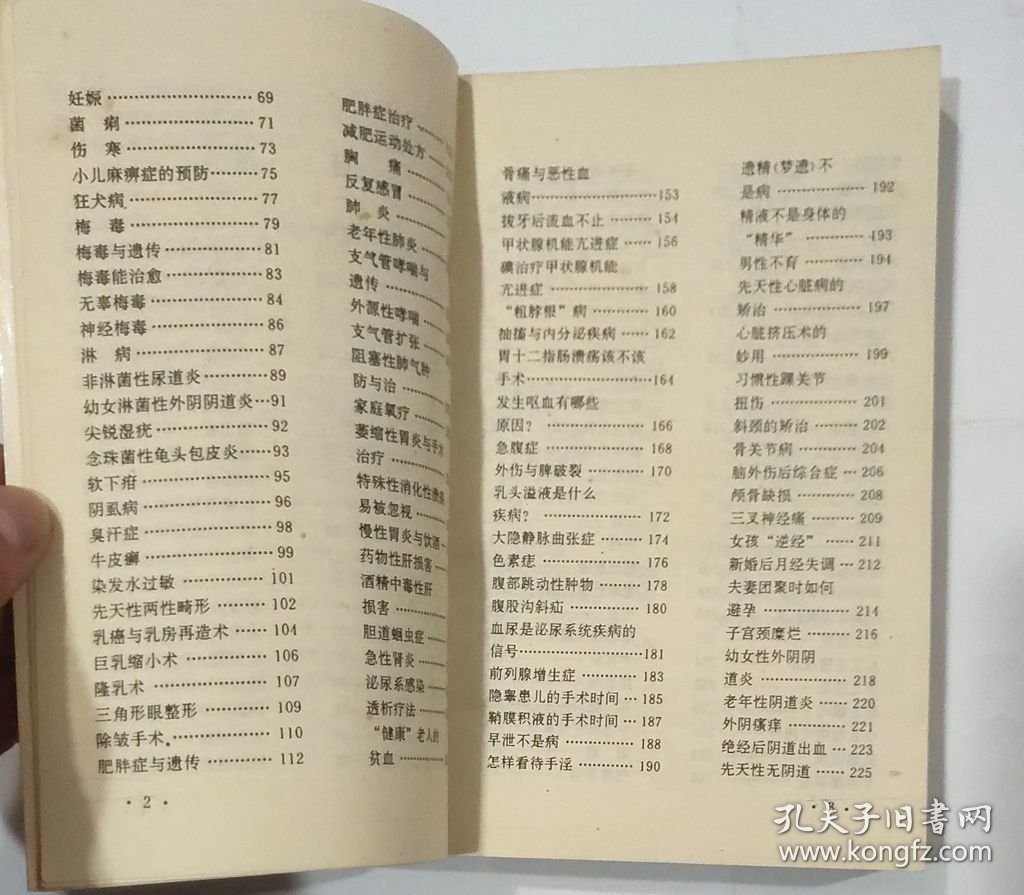 妊娠………………………69
菌 痢……………………71
伤 寒……………………73
小儿麻痹症的预防……75
狂犬病……………………77
梅 毒……………………79
梅毒与遗传………………81
梅毒能治愈………………83
无辜梅毒…………………84
神经梅毒…………………86
淋 病……………………87
非淋菌性尿道炎…………89
幼女淋菌性外阴阴道炎…91
尖锐湿疣…………………92
念珠菌性龟头包皮炎……93
软下疳……………………95
阴虱病……………………96
臭汗症……………………98
牛皮癣……………………99
染发水过敏………………101
先天性两性畸形…………102
乳癌与乳房再造术………104
巨乳缩小术………………106
隆乳术……………………107
三角形眼整形……………109
除皱手术…………………110
肥胖症与遗传……………112
· 2 ·
肥胖症治疗
减肥运动处方
胸 痛
反复感冒
肺 炎
老年性肺炎
支气管哮喘与
遗传
外源性哮喘
支气管扩张
阻塞性肺气肿
防与治
家庭氧疗
萎缩性胃炎与手术
治疗
特殊性消化性溃疡
易被忽视
慢性胃炎与饮酒
药物性肝损害
酒精中毒性肝
损害
胆道蛔虫症
急性肾炎
泌尿系感染
透析疗法
“健康”老人的
贫血
骨痛与恶性血
液病………………………153
拔牙后流血不止…………154
甲状腺机能亢进症………156
碘治疗甲状腺机能
亢进症……………………158
“粗脖根”病……………160
抽搐与内分泌疾病………162
胃十二指肠溃疡该不该
手术………………………164
发生呕血有哪些
原因?……………………166
急腹症……………………168
外伤与脾破裂……………170
乳头溢液是什么
疾病?……………………172
大隐静脉曲张症…………174
色素痣……………………176
腹部跳动性肿物…………178
腹股沟斜疝………………180
血尿是泌尿系统疾病的
信号………………………181
前列腺增生症……………183
隐睾患儿的手术时间……185
鞘膜积液的手术时间……187
早泄不是病………………188
怎样看待手淫……………190
遗精(梦遗)不
是病………………………192
精液不是身体的
“精华”…………………193
男性不育…………………194
先天性心脏病的
矫治………………………197
心脏挤压术的
妙用………………………199
习惯性踝关节
扭伤………………………201
斜颈的矫治………………202
骨关节病…………………204
脑外伤后综合症…………206
颅骨缺损…………………208
三叉神经痛………………209
女孩“逆经”……………211
新婚后月经失调…………212
夫妻团聚时如何
避孕………………………214
子宫颈糜烂………………216
幼女性外阴阴
道炎………………………218
老年性阴道炎……………220
外阴瘙痒…………………221
绝经后阴道出血…………223
先天性无阴道……………225
孔夫子旧书网
www.kongfz.com